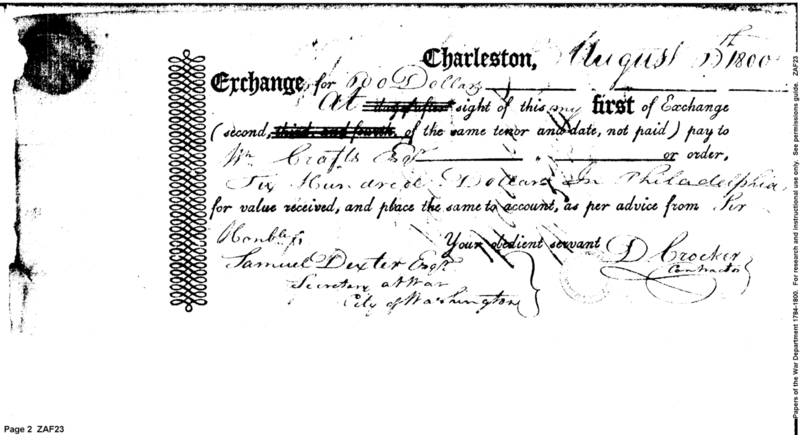 Charleston, August 5th 1800
Exchange, for 600 Dollars
At days after sight of this my first of Exchange
(second, third, and fourth, of the same tenor and date, not paid) pay to
Wm Crafts Esqr or order,
Six Hundred Dollars in Philadelphia
for value received, and place the same to account, as per advice from Sir
Your obedient servant
Honble
Samuel Dexter Esqr
Secretary at War
City of Washington
D Crocker
Contractor
Page 2 ZAF23
Papers of the War Department 1784-1800. For research and instructional use only. See permissions guide. ZAF23